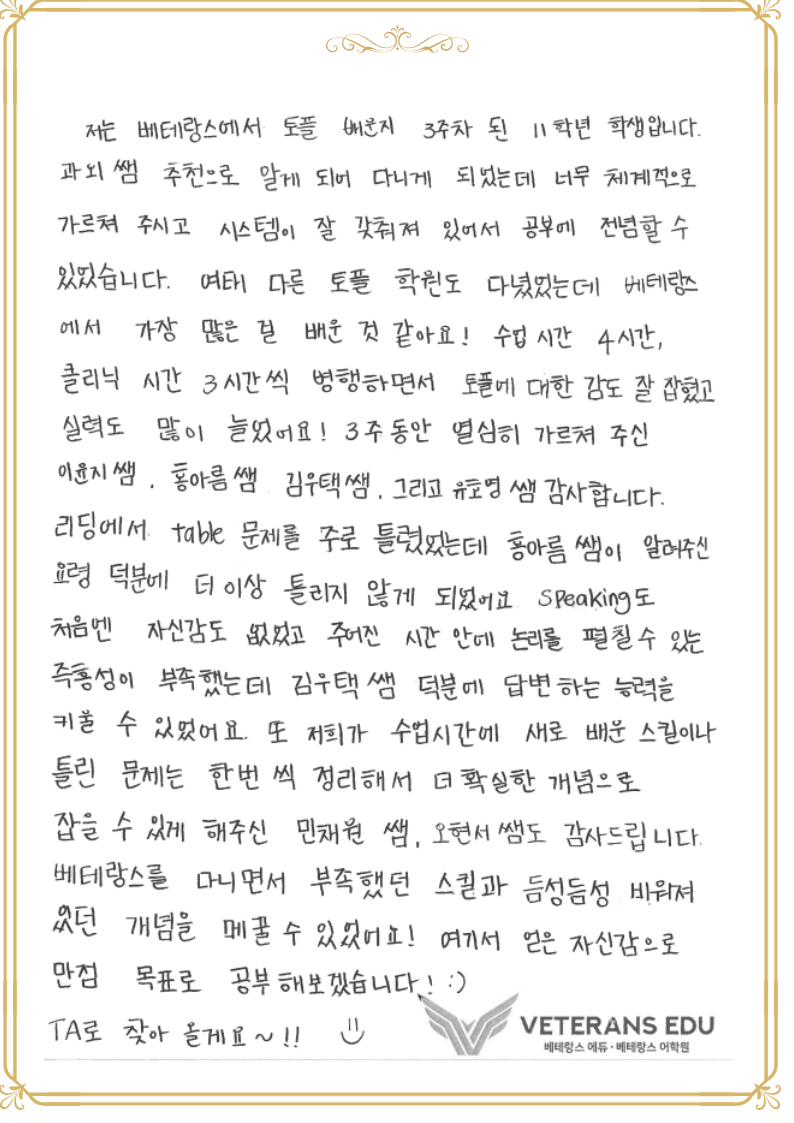 저는 베테랑스에서 토플 배운지 3주차 된 11학년 학생입니다.
과외 쌤 추천으로 알게 되어 다니게 되었는데 너무 체계적으로
가르쳐 주시고 시스템이 잘 갖춰져 있어서 공부에 전념할 수
있었습니다. 여태 다른 토플 학원도 다녔었는데 베테랑스
에서 가장 많은 걸 배운 것 같아요! 수업 시간 4시간,
클리닉 시간 3시간씩 병행하면서 토플에 대한 감도 잘 잡혔고
실력도 많이 늘었어요! 3주 동안 열심히 가르쳐 주신
이윤지 쌤, 홍아름 쌤 김우택 쌤, 그리고 유호영 쌤 감사합니다.
리딩에서 table 문제를 주로 틀렸었는데 홍아름 쌤이 알려주신
요령 덕분에 더 이상 틀리지 않게 되었어요 speaking도
처음엔 자신감도 없었고 주어진 시간 안에 논리를 펼칠 수 있는
즉흥성이 부족했는데 김우택 쌤 덕분에 답변하는 능력을
키울 수 있었어요. 또 저희가 수업시간에 새로 배운 스킬이나
틀린 문제는 한번 씩 정리해서 더 확실한 개념으로
잡을 수 있게 해주신 민채원 쌤, 오현서 쌤도 감사드립니다.
베테랑스를 다니면서 부족했던 스킬과 듬성듬성 비워져
있던 개념을 메꿀 수 있었어요! 여기서 얻은 자신감으로
만점 목표로 공부해보겠습니다! :)
TA로 찾아 올게요~!!
VETERANS EDU
베테랑스 에듀·베테랑스 어학원